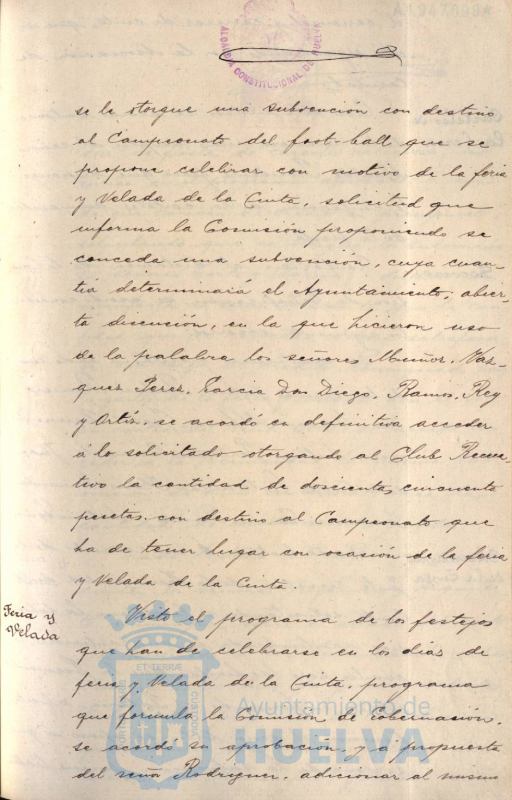 ALCALDIA CONSTITUCIONAL DE HUELVA
se le otorgue una subvención con destino
al Campeonato del foot-ball que se
propone celebrar con motivo de la feria
y Velada de la Cinta, solicitud que
informa la Comisión proponiendo se
conceda una subvención, cuya cuan-
tia determinará el Ayuntamiento, abier-
ta discusión, en la que hicieron uso
de la palabra los señores Muñoz, Vaz-
quez Perez, Garcia Don Diego, Ramos, Rey
y Ortíz, se acordó en definitiva acceder
á lo solicitado otorgando al Club Recrea-
tivo la cantidad de doscientas cincuenta
pesetas, con destino al Campeonato que
ha de tener lugar con ocasión de la feria
y Velada de la Cinta.
Feria y
Velada
Visto el programa de los festejos
que han de celebrarse en los dias de
feria y Velada de la Cinta, programa
que formula la Comisión de Gobernación,
se acordó su aprobación, y á propuesta
del señor Rodriguez, adicionar al mismo
Ayuntamiento de
HUELVA